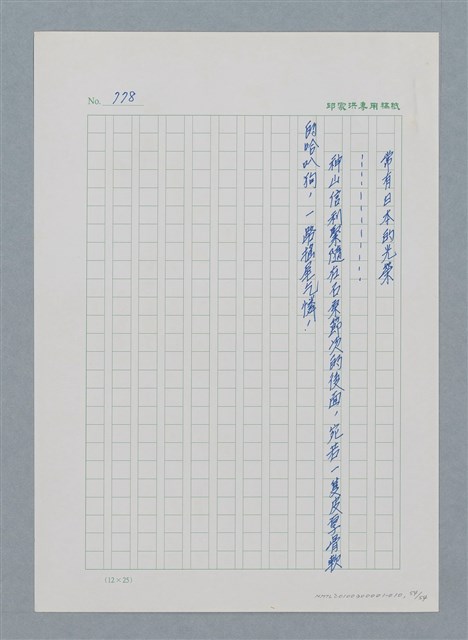 No. 778
邱家洪專用稿紙
常有日本的光榮
神山信利緊隨在石來節次的後面，宛若一隻皮厚骨軟
的哈叭狗，一路搖尾乞憐！
(12×25)
54/54